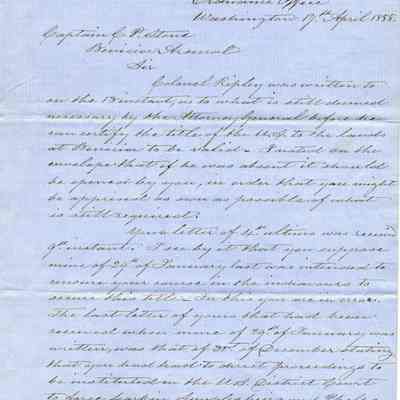 Ordnance Office
Washington 17th April 1855.
Captain C. P. Stone
Benicia Arsenal
Sir
Colonel Ripley was written to
on the 13 instant, as to what is still deemed
necessary by the Attorney General before he
can certify the title of the U.S. to the lands
at Benicia to be valid. I noted on the
envelope that if he was absent it should
be opened by you, in order that you might
be apprised as soon as possible of what
is still required.
Your letter of 4th ultimo was received
9th instant. I see by it that you suppose
mine of 29th of January last was intended to
censure your course in the endeavours to
secure this title. In this you are in error.
The last letter of yours that had been
received when mine of 29th of January was
written, was that of 30th of December stating
that you had had to direct proceedings to
be instituted in the U.S. District Court
to force Larkin, and Phelps